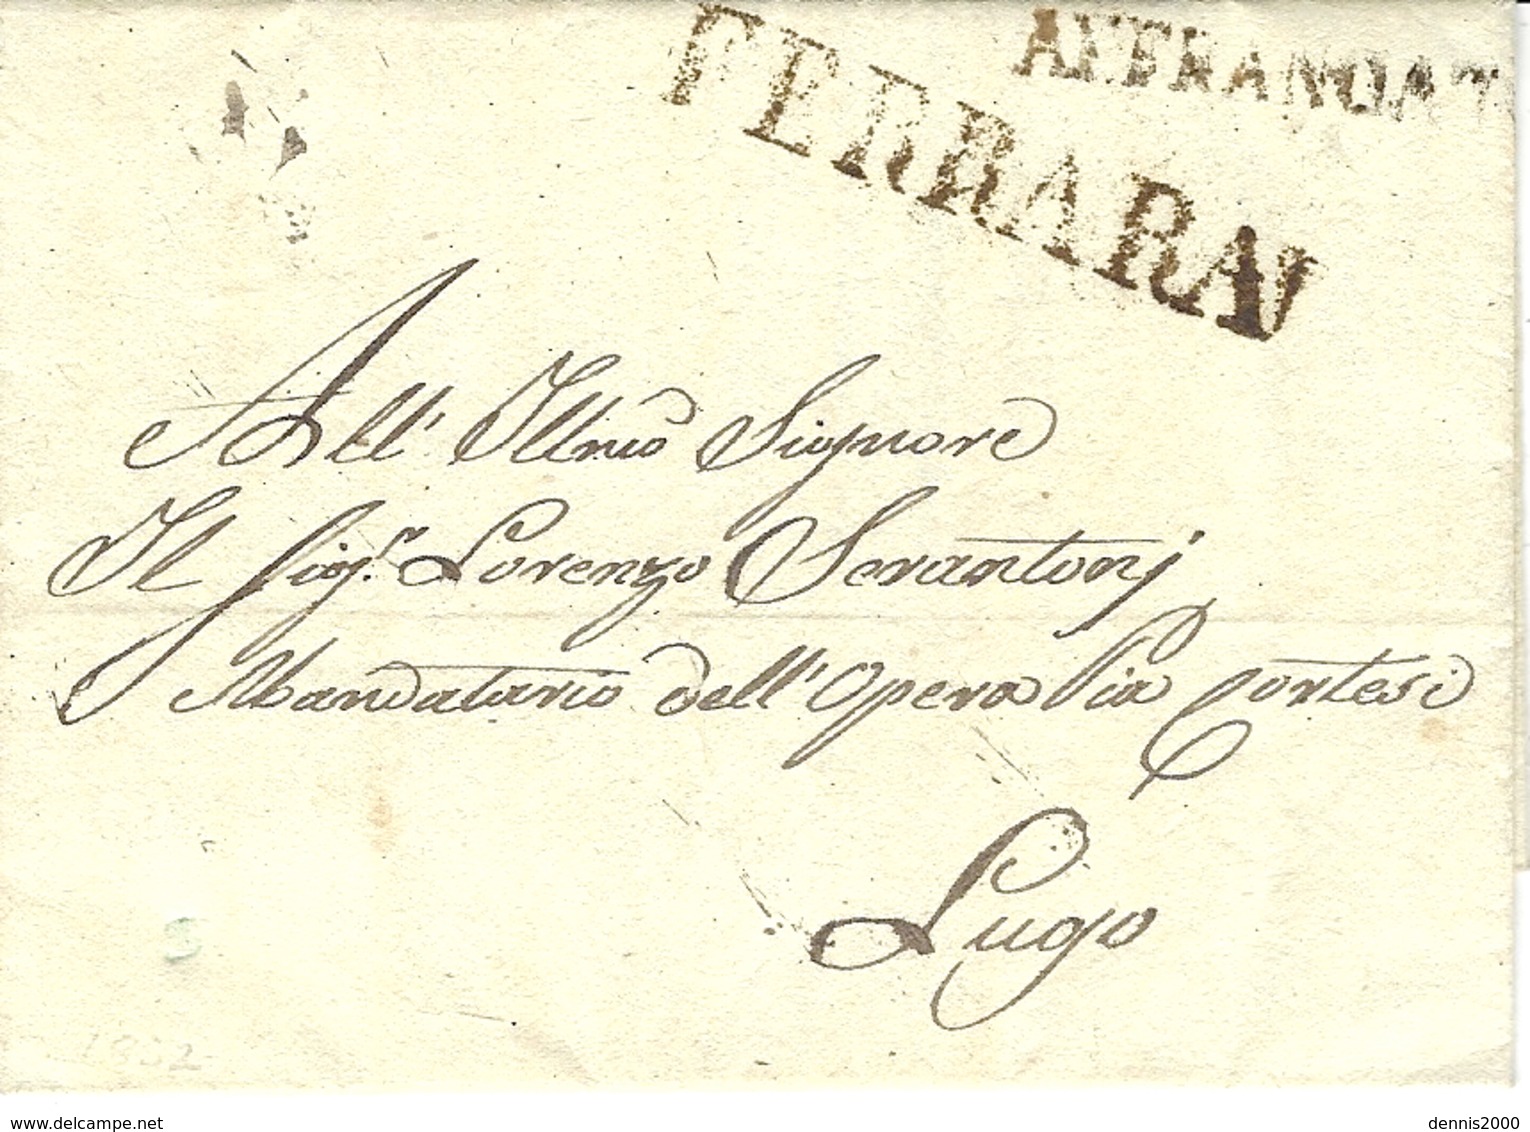 AFFRANCAT
FERRARA
All' Illmõ Signore
Il Sig.r Lorenzo Serantonj
Mandatario dell'Opera Pia Cortesi
Lugo
1832
dennis2000